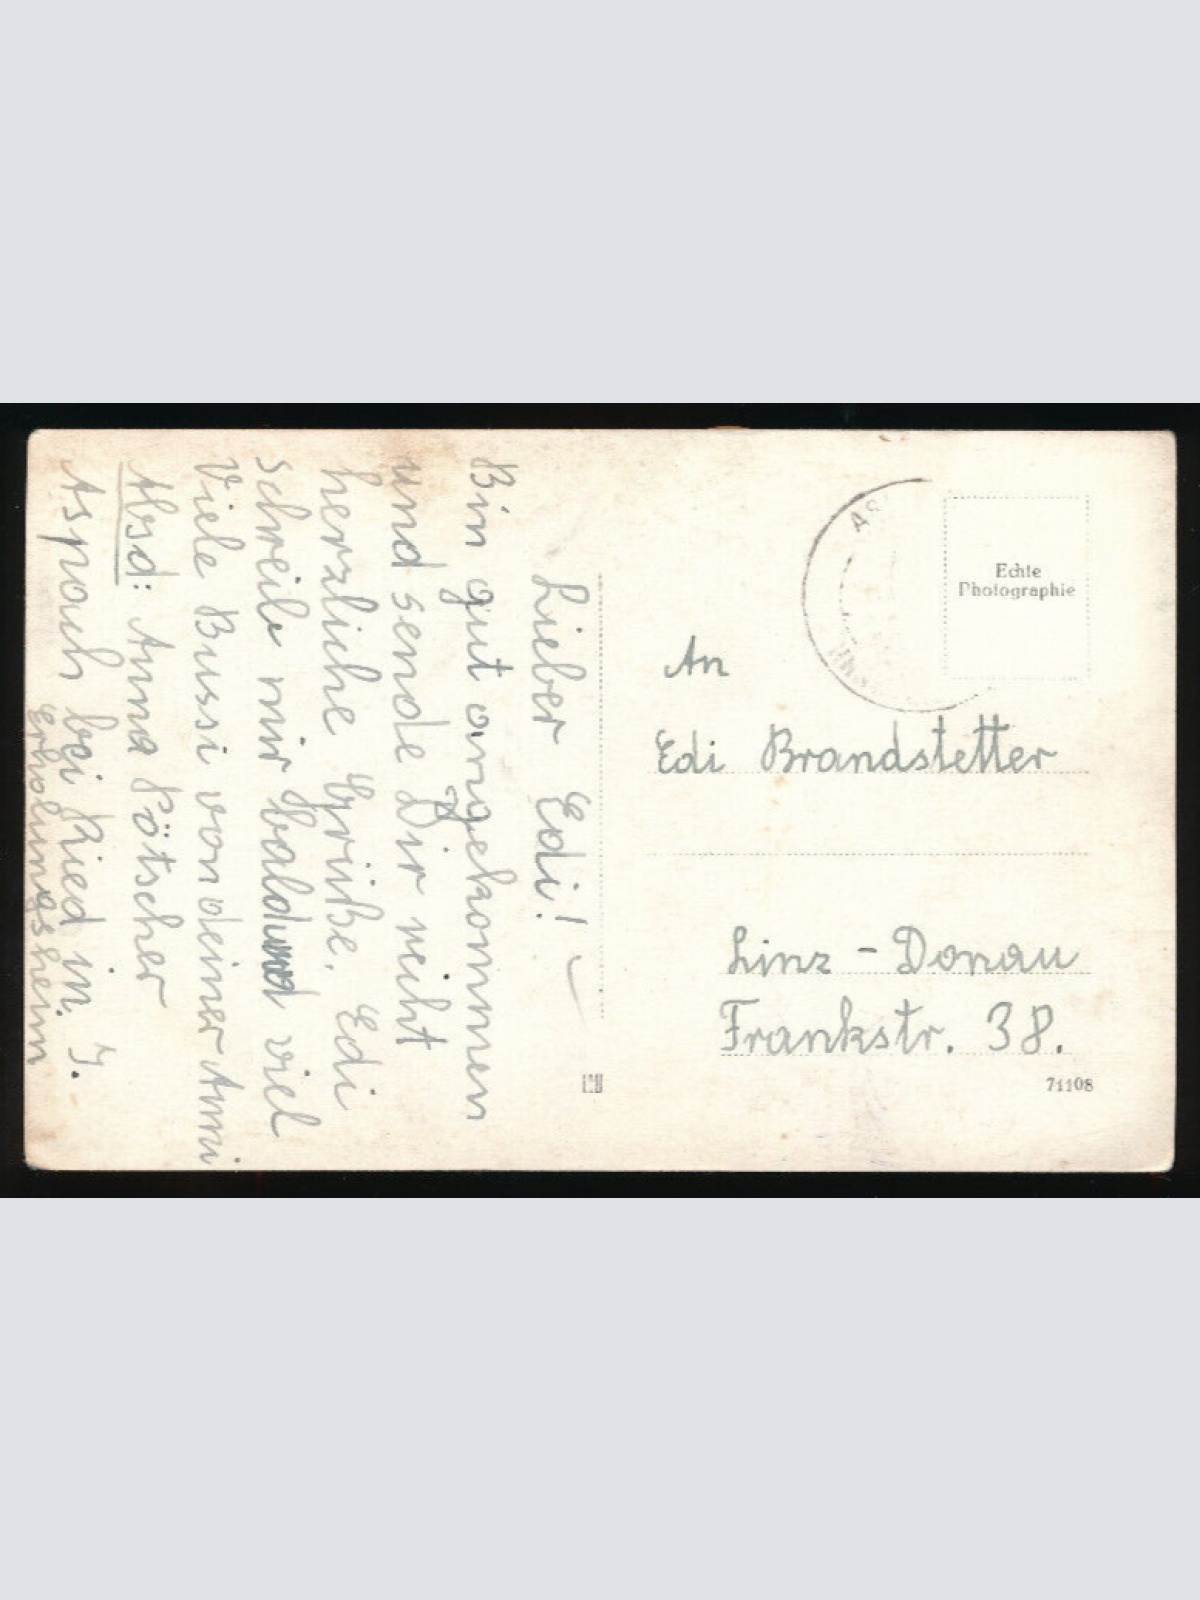 Lieber Edi!
Bin gut angekommen
und sende Dir recht
herzliche Grüße. Edi
schreib mir bald und viel
Viele Bussi von deiner Anni
Absd: Anna Pötscher
Aspach bei Ried in. I.
Erholungsheim
Echte
Photographie
An
Edi Brandstetter
Linz - Donau
Frankstr. 38.
71108